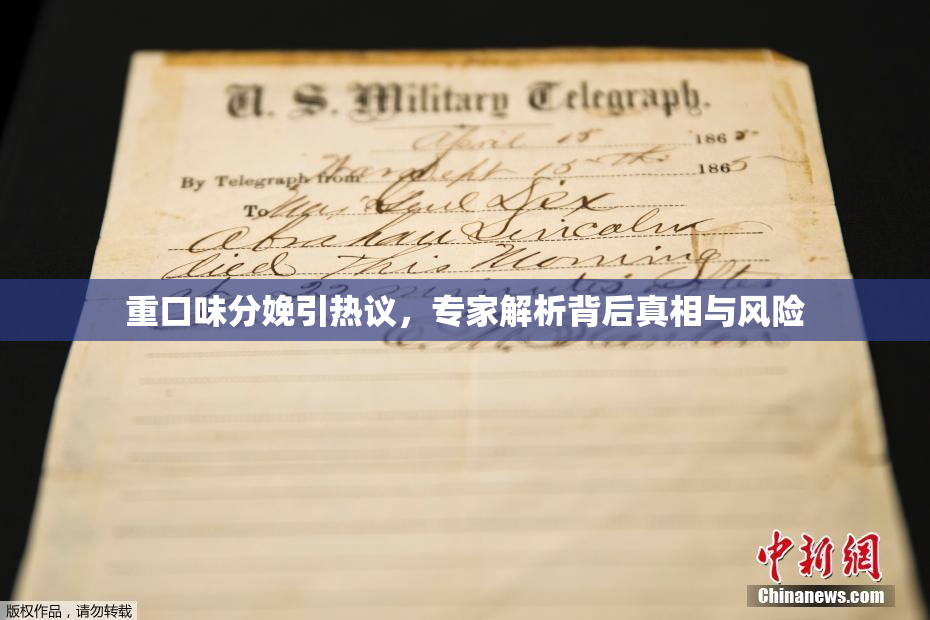 U. S. Military Telegraph.
April 15 1865
By Telegraph from War Dept 15th 1865
To Maj Genl Dix
Abraham Lincoln
died This Morning
22 minutes after
重口味分娩引热议，专家解析背后真相与风险
E. M. Stanton
中新网
Chinanews.com
版权作品，请勿转载